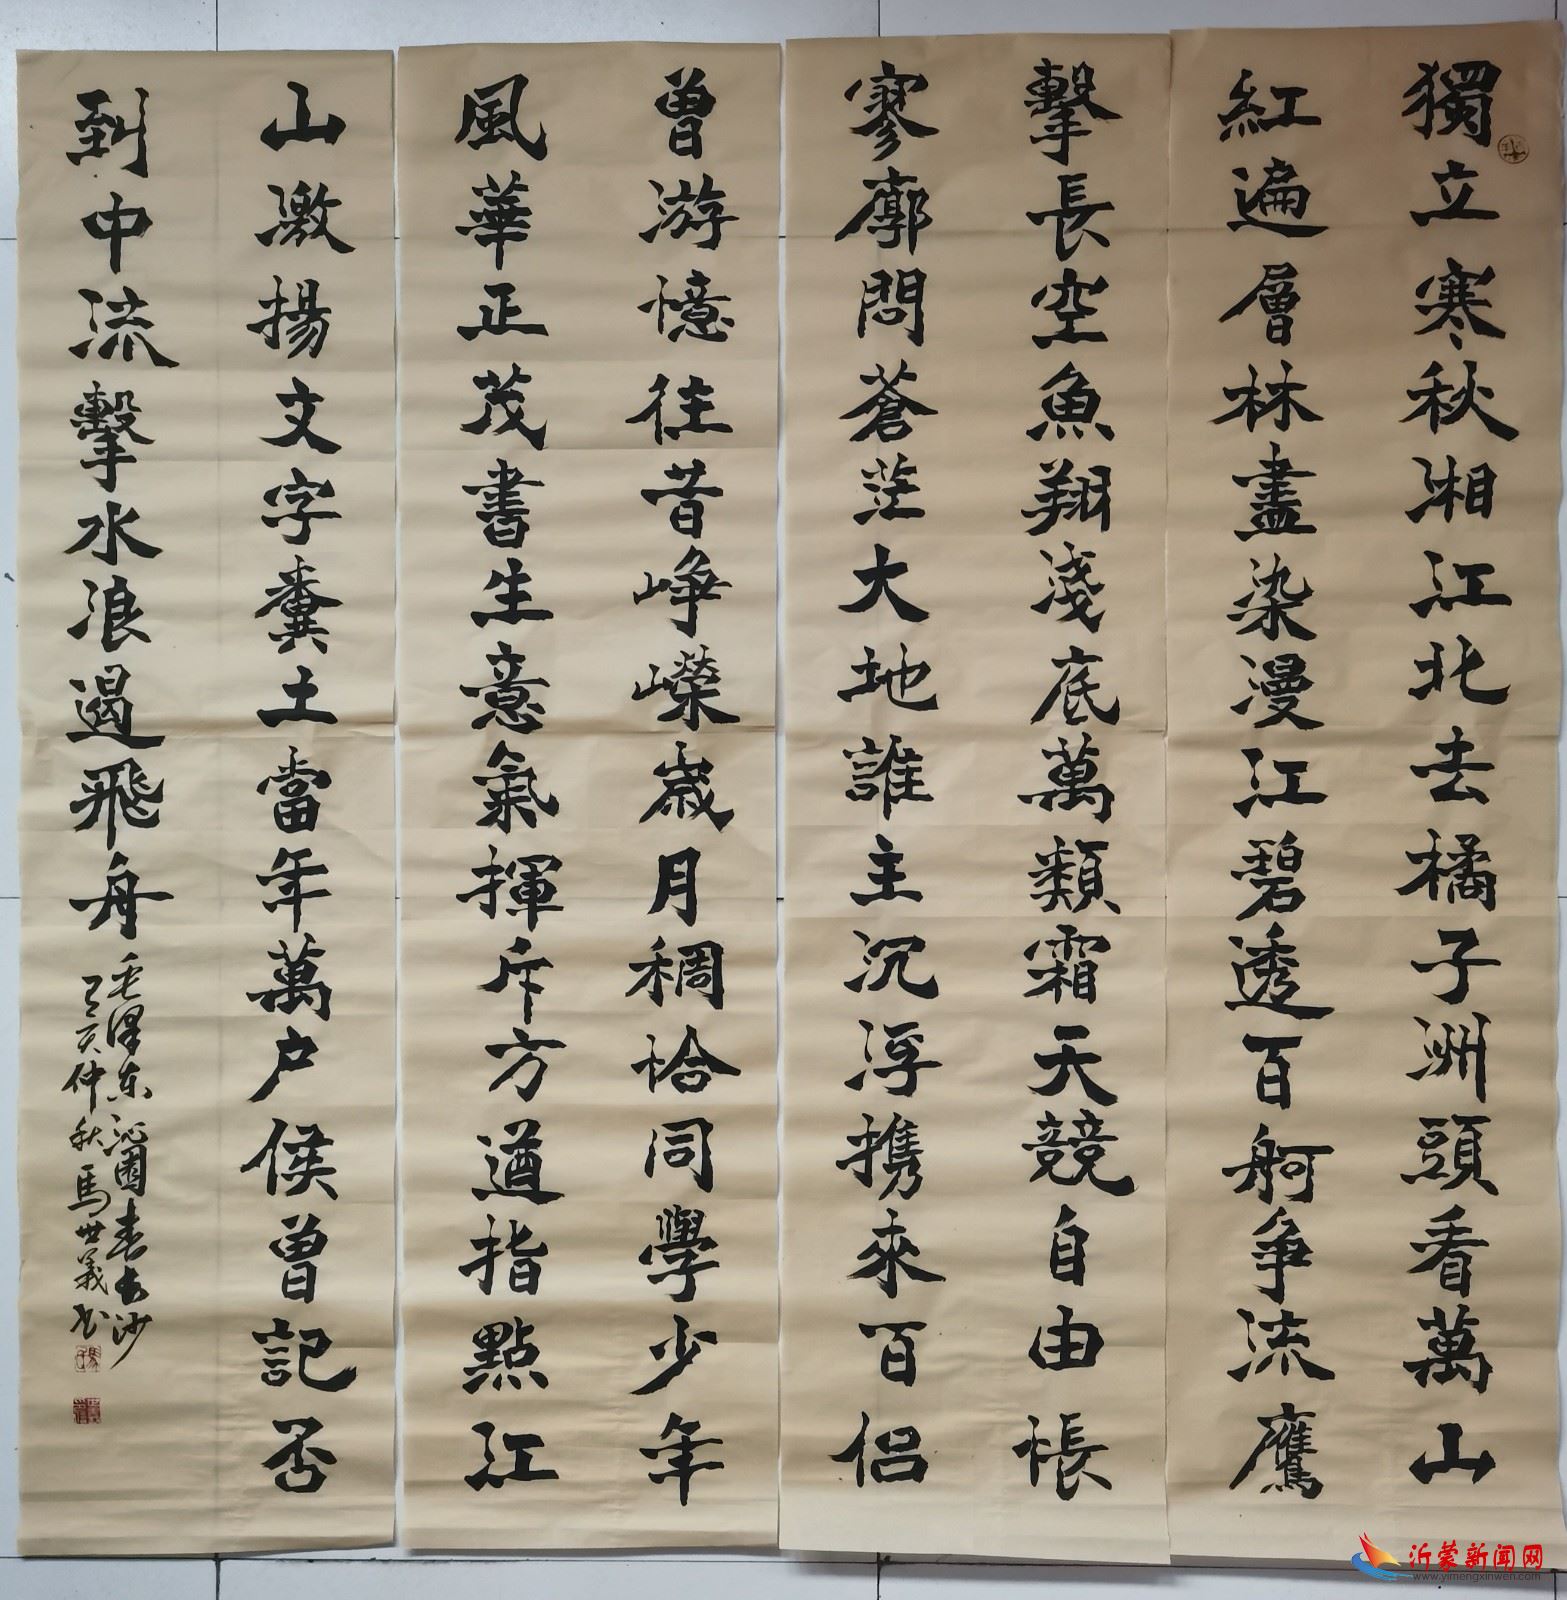 獨立寒秋湘江北去橘子洲頭看萬山
紅遍層林盡染漫江碧透百舸爭流鷹
擊長空魚翔淺底萬類霜天競自由悵
寥廓問蒼茫大地誰主沉浮携來百侶
曾游憶往昔崢嶸歲月稠恰同學少年
風華正茂書生意氣揮斥方遒指點江
山激揚文字糞土當年萬户侯曾記否
到中流擊水浪遏飛舟
毛澤東沁園春長沙
己亥仲秋馬世義书
沂蒙新闻网
www.yimengxinwen.com